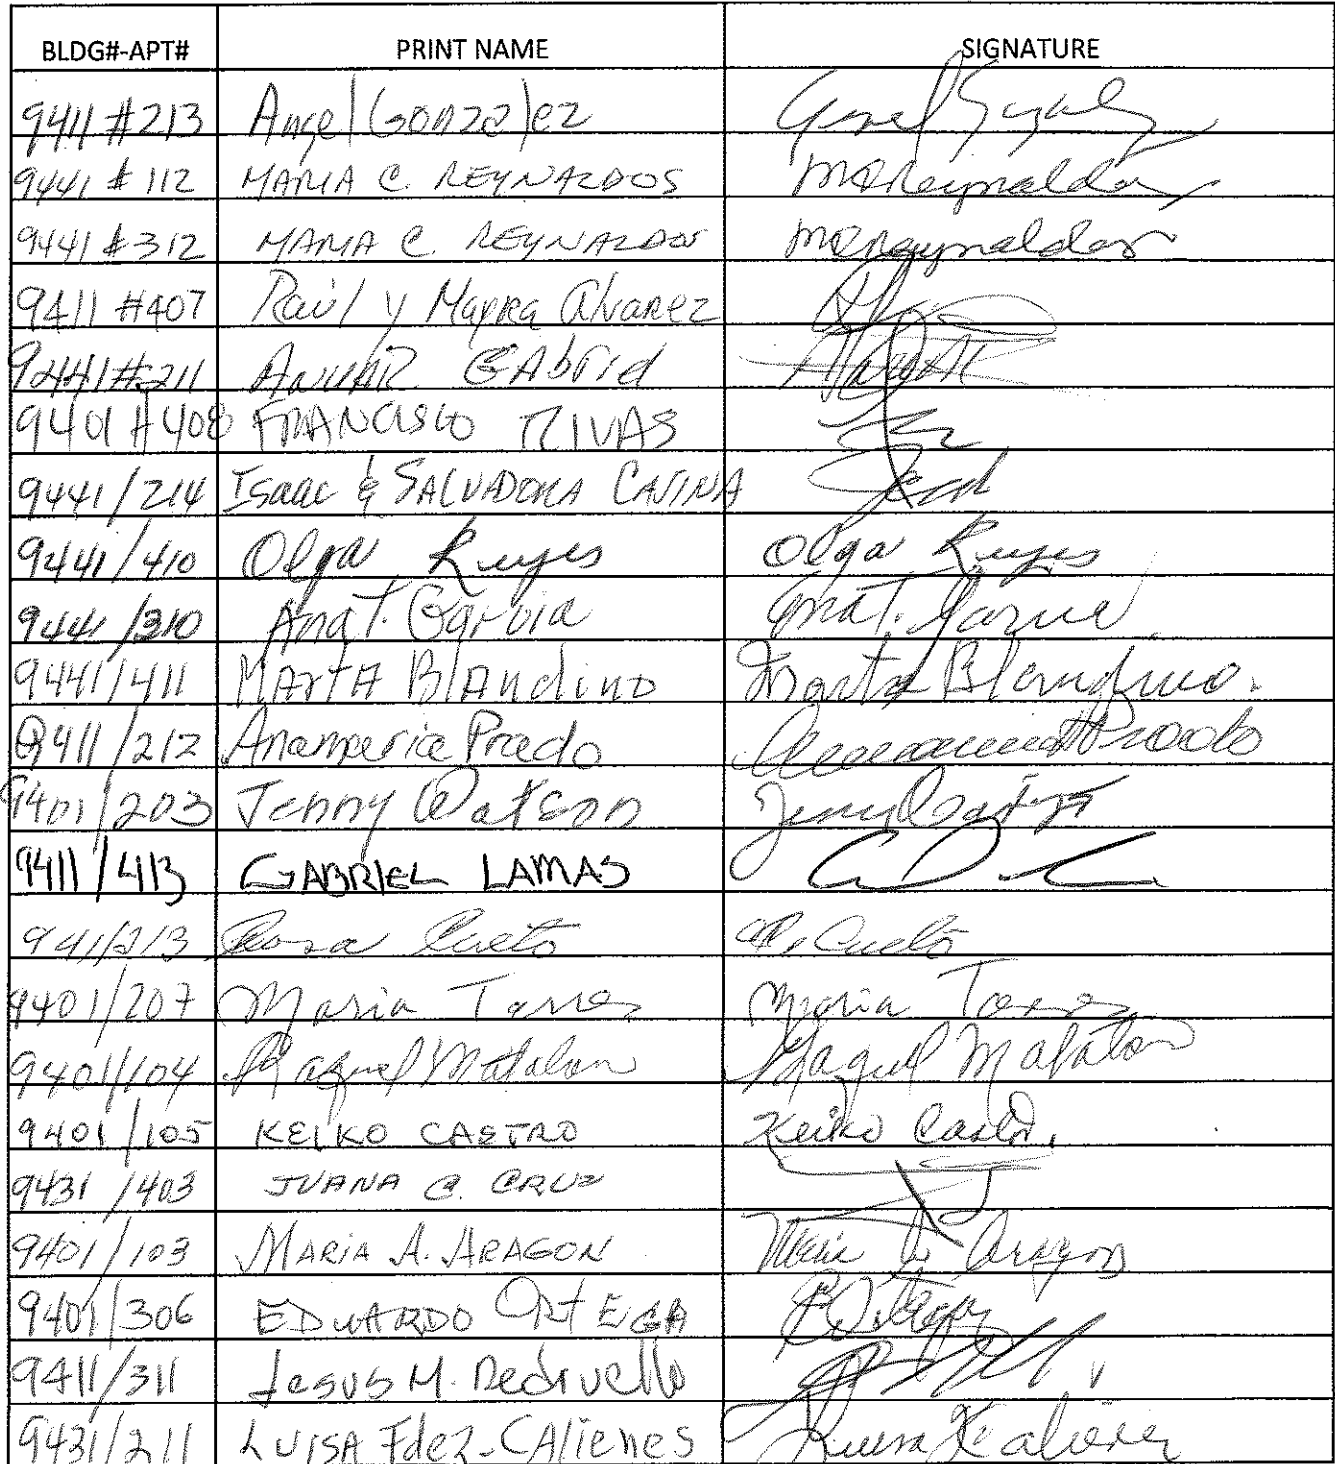 BLDG#-APT# PRINT NAME SIGNATURE
9411 #213 Angel Gonzalez
9441 #112 MARIA C. REYNALDOS MCReynaldos
9441 #312 MARIA C. REYNALDOS MCReynaldos
9411 #407 Raúl y Mayra Alvarez
9441 #211 ANUAR GAbriel
9401 #408 FRANCISCO RIVAS
9441/214 Isaac & SALVADORA
9441/410 Olga Reyes Olga Reyes
9441/310 Ana T. Garcia Ana T. Garcia
9441/411 MArtA BlAndino Marta Blandino.
9411/212 Anamaria Prado Anamaria Prado
9401/203 Jenny Watson Jenny
9411/413 GABRIEL LAMAS
941/213 Rosa Cueto R. Cueto
9401/207 Maria Torres Maria Torres
9401/104 Raquel Matalon Raquel Matalon
9401/105 KEIKO CASTRO Keiko Castro.
9431/403 JUANA C. CRUZ
9401/103 MARIA A. ARAGON Maria A. Aragon
9401/306 EDUARDO ORtEGA EOrtega
9411/311 Jesus M.
9431/211 LUISA Fdez-CAlienes